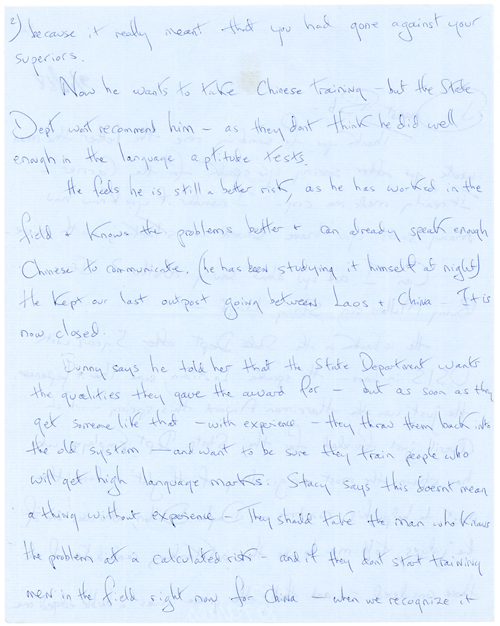 2) because it really meant that you had gone against your
superiors.
Now he wants to take Chinese training - but the State
Dept wont recommend him - as they dont think he did well
enough in the language aptitude tests.
He feels he is still a better risk, as he has worked in the
field + knows the problems better + can already speak enough
Chinese to communicate. (he has been studying it himself at night)
He kept our last outpost going between Laos + China - It is
now closed.
Bunny says he told her that the State Department wants
the qualities they gave the award for - but as soon as they
get someone like that - with experience - they throw them back into
the old system - and want to be sure they train people who
will get high language marks. Stacy says this doesnt mean
a thing without experience - They should take the man who knows
the problem at a calculated risk - and if they dont start training
men in the field right now for China - when we recognize it